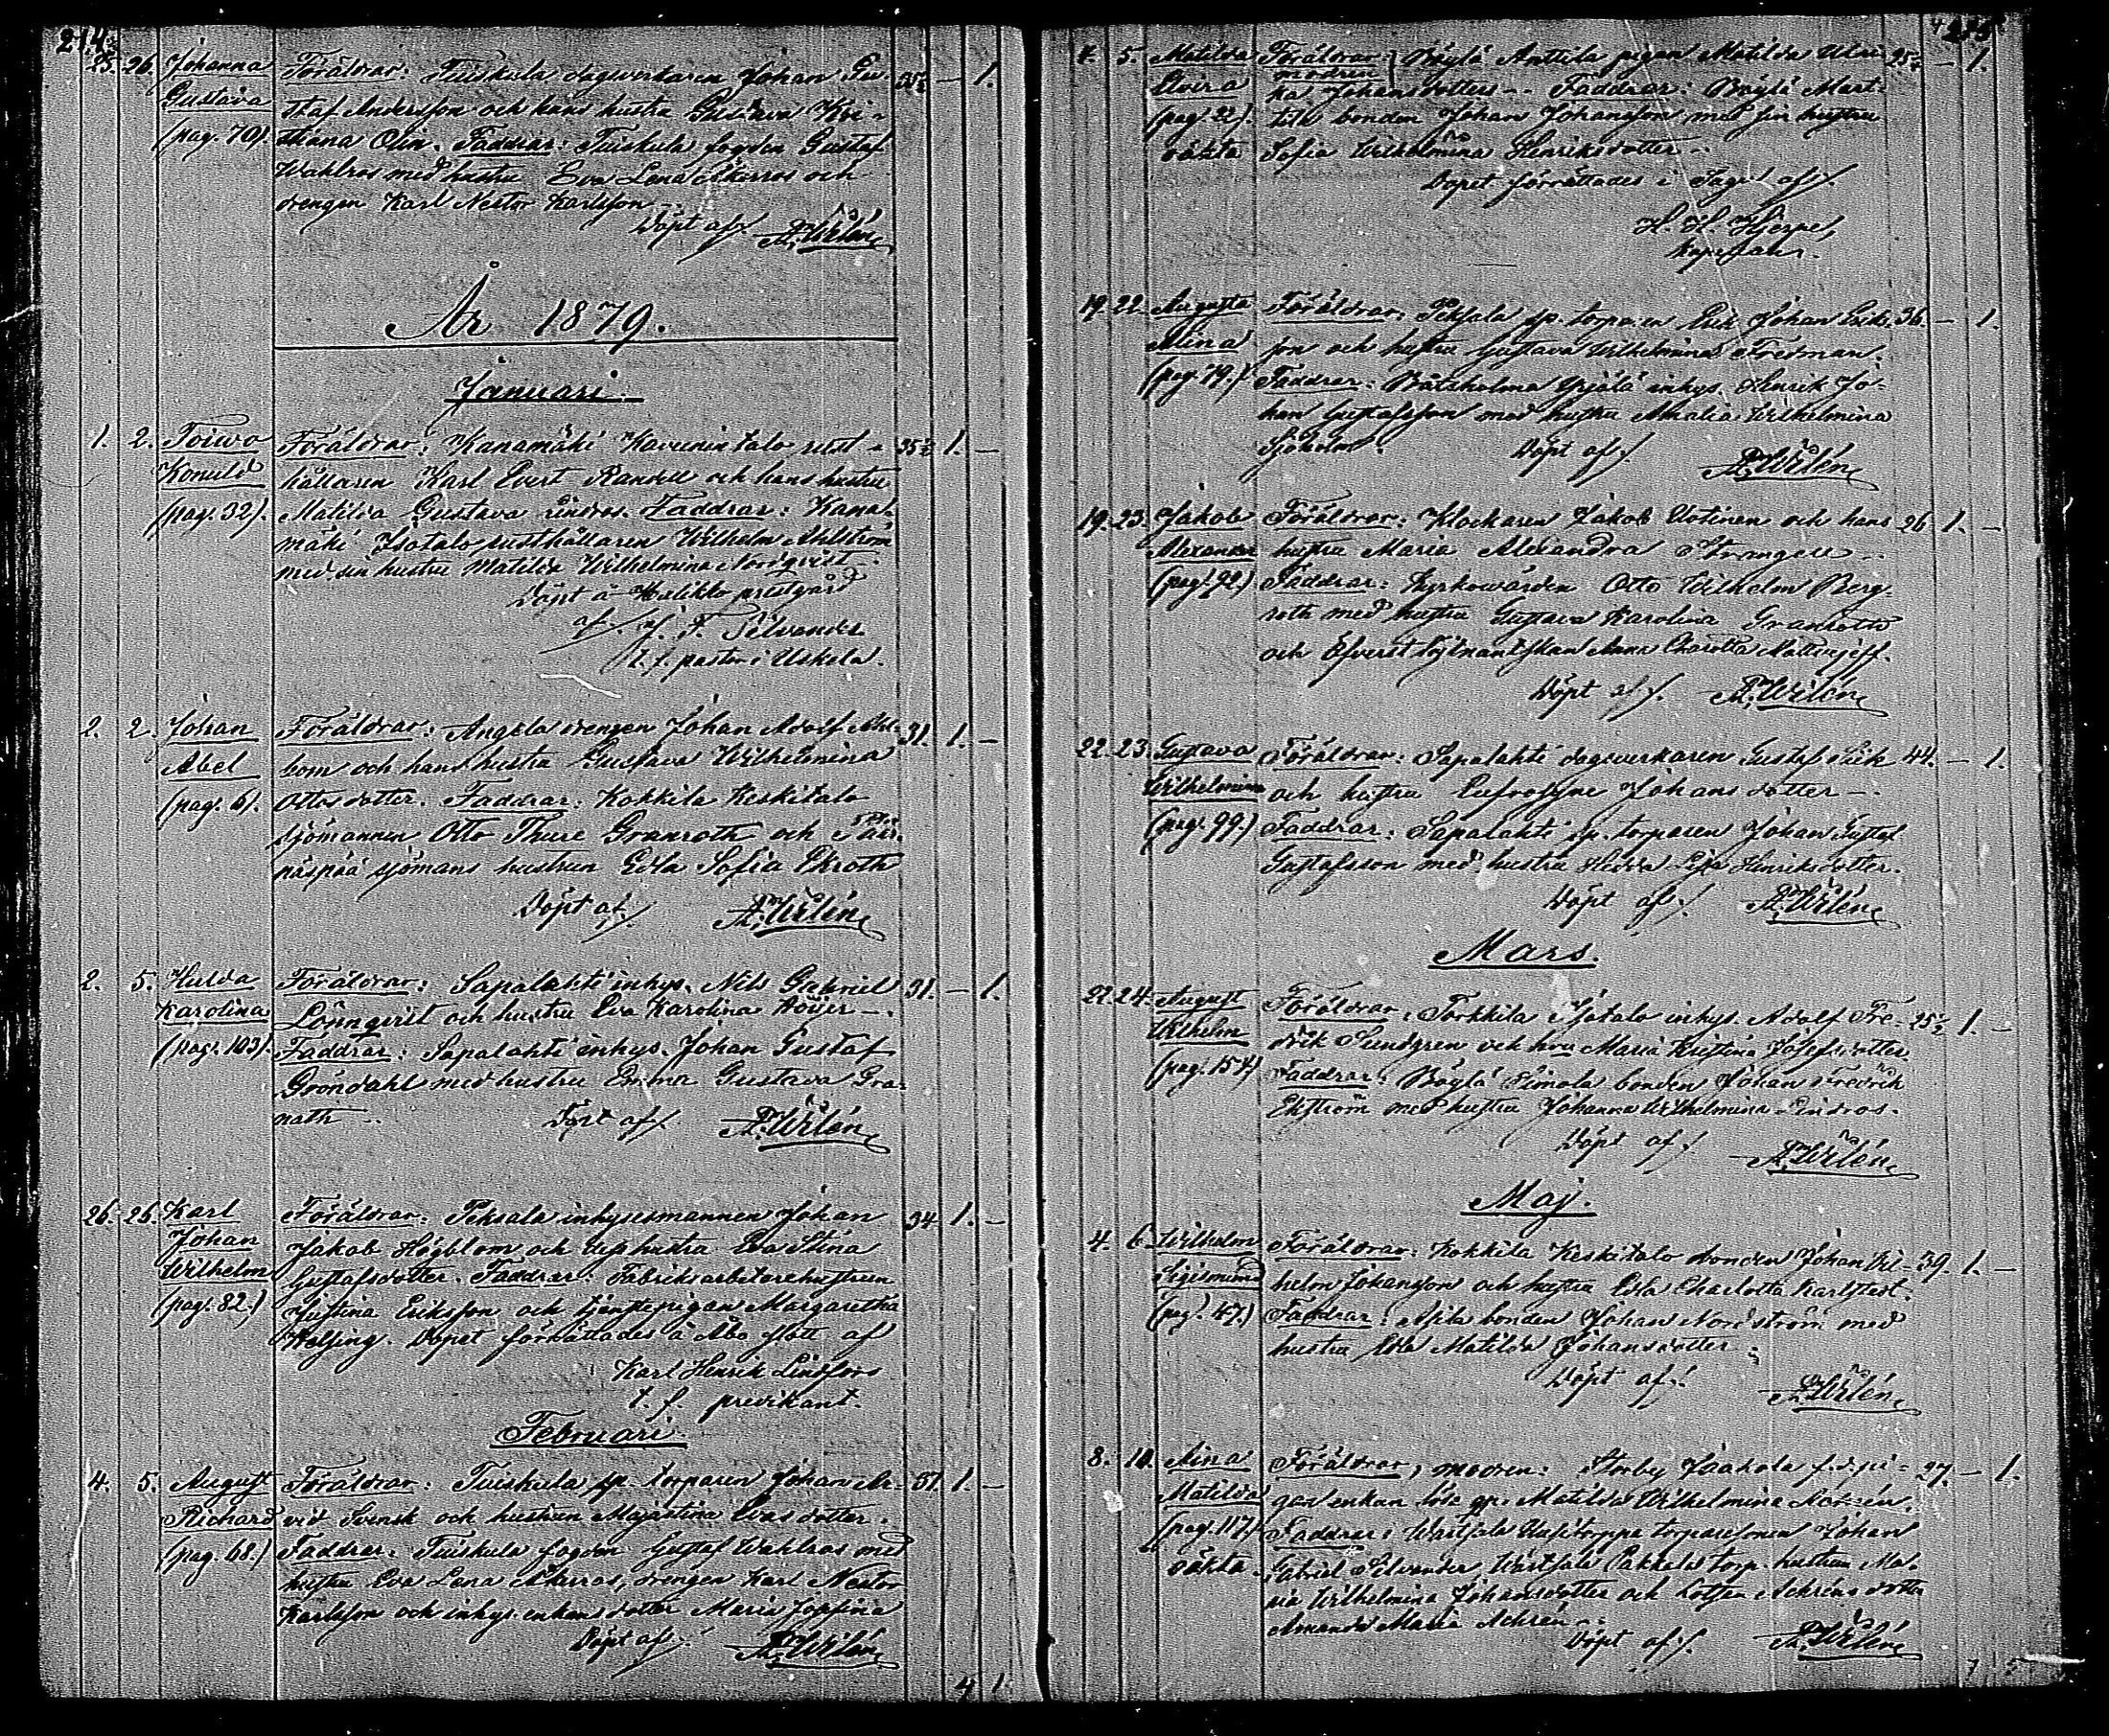 214.
25. 26. Johanna Föräldrar: Tuiskula dagsverkaren Johan Gu- 35½ — 1.
Gustava staf Andersson och hans hustru Gustava Kri-
(pag. 70). stiana Olin. Faddrar: Tuiskula fogden Gustaf
Wahlros med hustru Eva Lena Åkerros och
drengen Karl Nestor Karlsson —.
Döpt af/. A. Wilén
År 1879.
Januari.
1. 2. Toiwo Föräldrar: Kanamäki rust- 35½ 1. —
hållaren Karl Evert Randell och hans hustru
(pag. 32). Matilda Gustava Lindros. Faddrar: Kana-
mäki Isotalo rusthållaren Wilhelm Ahlström
med sin hustru Matilda Wilhelmina Nordqvist —.
Döpt å Halikko prestgård
af/. F. Silvander
t. f. pastor i Uskela.
2. 2. Johan Föräldrar: Angela drengen Johan Adolf 31. 1. —
Abel bom och hans hustru Gustava Wilhelmina
(pag. 6). Ottosdotter. Faddrar: Kokkila Keskitalo
sjömannen Otto Thure Granroth och
näspää sjömans hustrun Edla Sofia Ekroth
Döpt af/. A. Wilén
2. 5. Hulda Föräldrar: Sapalahti inhys. Nils Gabriel 31. — 1.
Karolina Lönnqvist och hustru Eva Karolina Höijer —.
(pag. 103). Faddrar: Sapalahti inhys. Johan Gustaf
Gröndahl med hustru Emma Gustava Gra-
nath —. Döpt af/. A. Wilén
26. 26. Karl Föräldrar: Peksala inhysesmannen Johan 34 1. —
Johan Jakob Högblom och dess hustru Eva Stina
Wilhelm Gustafsdotter. Faddrar: Fabriksarbetarehustrun
(pag. 82.) Justina Eriksson och tjenstepigan Margaretha
Helsing. Dopet förrättades å Åbo slott af
Karl Henrik Lindfors
t. f. predikant.
Februari.
4. 5. August Föräldrar: Tuiskula sp. torparen Johan Ar- 37. 1. —
Richard vid Svensk och hustrun Majastina Evasdotter.
(pag. 68.) Faddrar: Tuiskula fogden Gustaf Wahlros med
hustru Eva Lena Åkerros, drengen Karl Nestor
Karlsson och inhys. enkans dotter Maria Josefina
Döpt af/. A. Wilén
4 1
215
4. 5. Matilda Föräldrar: modren Böylä Anttila pigan Matilda Ulri- 25½ — 1.
Elvira ka Johansdotter —. Faddrar: Böylä Mart-
(pag. 22). tila bonden Johan Johansson med sin hustru
oäkta Sofia Wilhelmina Henriksdotter —.
Dopet förrättades i Sagu af/.
H. H. Hjerpe,
Kapellan.
19. 22. Augusta Föräldrar: Peksala sp. torparen Erik Johan Eriks- 36. — 1.
Alina son och hustru Gustava Wilhelmina Fredman.
(pag. 79.) Faddrar: Båtsholma inhys. Henrik Jo-
han Gustafsson med hustru Amalia Wilhelmina
Sjöholm. Döpt af/. A. Wilén
19. 23. Jakob Föräldrar: Klockaren Jakob Uotinen och hans 26 1. —
Alexander hustru Maria Alexandra Strangell —.
(pag. 92.) Faddrar: Kyrkovärden Otto Wilhelm Berg-
roth med hustru Gustava Karolina Granroth
och Öfverstlöjtnantskan Anna Charlotta
Döpt af/. A. Wilén
22. 23. Gustava Föräldrar: Sapalahti dagsverkaren Gustaf 44. — 1.
Wilhelmina och hustru Eufrosyne Johansdotter —.
(pag. 99.) Faddrar: Sapalahti sp. torparen Johan Gustaf
Gustafsson med hustru Hedda Lisa Henriksdotter.
Döpt af/. A. Wilén
Mars.
22. 24. August Föräldrar: Torkkila Isotalo inhys. Adolf Fre- 25½ 1. —
Wilhelm drik Sundgren och hru Maria Kristina Josefsdotter
(pag. 154) Faddrar: Böylä Simola bonden Johan Fredrik
Ekström med hustru Johanna Wilhelmina Lindros.
Döpt af/. A. Wilén
Maj.
4. 6. Wilhelm Föräldrar: Kokkila Keskitalo bonden Johan Wil- 39 1. —
Sigismund helm Johansson och hustru Edla Charlotta Karlstedt.
(pag. 47.) Faddrar: Asila bonden Johan Nordström med
hustru Eva Matilda Johansdotter.
Döpt af/. A. Wilén
8. 10. Aina Föräldrar, modren: Storby Jaakola f. d. pi- 27. — 1.
Matilda gan enkan Matilda Wilhelmina
(pag. 117) Faddrar: Wartsala torparesonen Johan
oäkta. Gabriel Silvander, Wartsala torp. hustrun Ma-
ria Wilhelmina Johansdotter och dotter
Amanda Maria
Döpt af/. A. Wilén
7 5